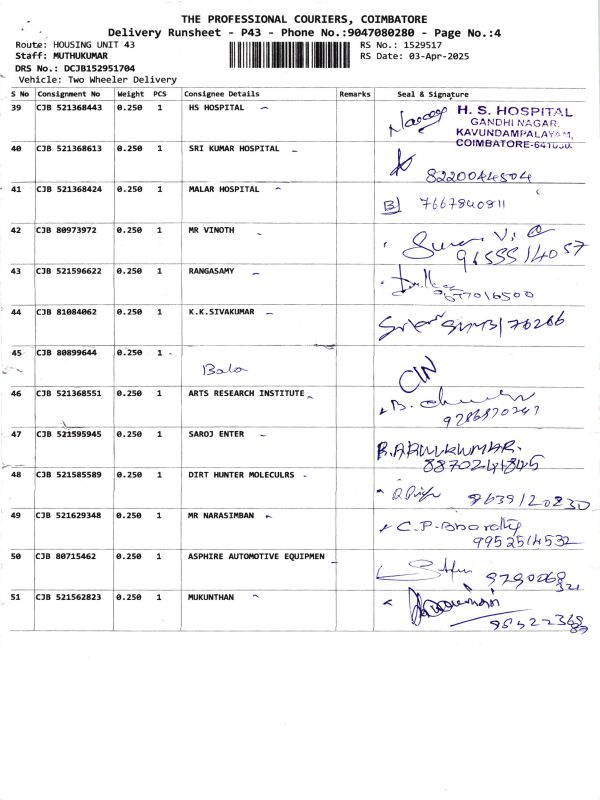 THE PROFESSIONAL COURIERS, COIMBATORE
Delivery Runsheet - P43 - Phone No.:9047080280 - Page No.:4
Route: HOUSING UNIT 43 RS No.: 1529517
Staff: MUTHUKUMAR RS Date: 03-Apr-2025
DRS No.: DCJB152951704
Vehicle: Two Wheeler Delivery
S No Consignment No Weight PCS Consignee Details Remarks Seal & Signature
39 CJB 521368443 0.250 1 HS HOSPITAL H. S. HOSPITAL
GANDHI NAGAR,
KAVUNDAMPALAYAM,
COIMBATORE-641030.
40 CJB 521368613 0.250 1 SRI KUMAR HOSPITAL
8220044504
41 CJB 521368424 0.250 1 MALAR HOSPITAL 7667840811
42 CJB 80973972 0.250 1 MR VINOTH
9655514057
43 CJB 521596622 0.250 1 RANGASAMY
44 CJB 81084062 0.250 1 K.K.SIVAKUMAR
45 CJB 80899644 0.250 1
Bala
46 CJB 521368551 0.250 1 ARTS RESEARCH INSTITUTE
47 CJB 521595945 0.250 1 SAROJ ENTER
B.ARULKUMAR.
48 CJB 521585589 0.250 1 DIRT HUNTER MOLECULRS
9639120830
49 CJB 521629348 0.250 1 MR NARASIMBAN C.P.Bharathy
9952514532
50 CJB 80715462 0.250 1 ASPHIRE AUTOMOTIVE EQUIPMEN
51 CJB 521562823 0.250 1 MUKUNTHAN